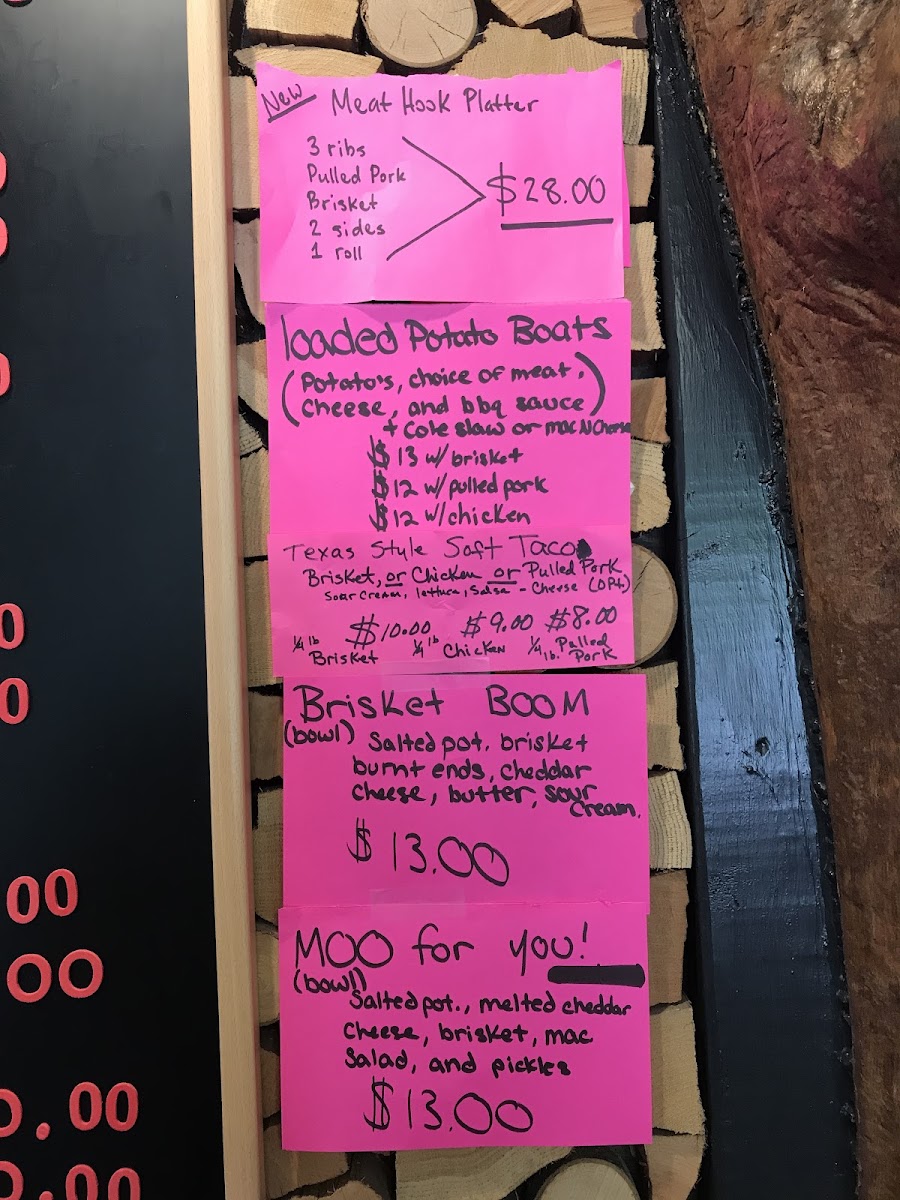 New Meat Hook Platter
3 ribs
Pulled Pork
Brisket
2 sides
1 roll
$28.00
loaded Potato Boats
(Potato's, choice of meat,
Cheese, and bbq sauce)
+ Cole slaw or mac N Cheese
$13 w/brisket
$12 w/pulled pork
$12 w/chicken
Texas Style Soft Taco
Brisket, or Chicken or Pulled Pork
Sour Cream, lettuce, Salsa - Cheese (OPt)
$10.00 $9.00 $8.00
1/4 lb Brisket 1/4 lb Chicken 1/4 lb. Pulled Pork
Brisket BOOM
(bowl) Salted pot. brisket
burnt ends, cheddar
cheese, butter, sour
Cream.
$13.00
MOO for you!
(bowl)
Salted pot., melted cheddar
Cheese, brisket, mac
Salad, and pickles
$13.00
0
0
00
00
0.00
0.00